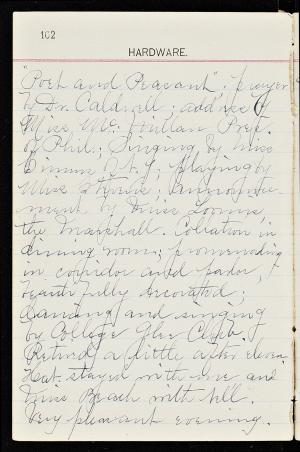 102
HARDWARE.
"Poet and Peasant"; prayer
by Dr. Caldwell; address of
Miss Mc. Pres.
of Phil.; Singing by Miss
N.Y.; playing by
Miss ; announce-
ment by Miss Loomis,
the Marshall. Collation in
dining room; promenading
in corridor and parlor,
beautifully decorated;
dancing and singing
by College Glee Club.
Retired a little after eleven.
Hat. stayed with me and
Miss Beach with Nell.
Very pleasant evening.